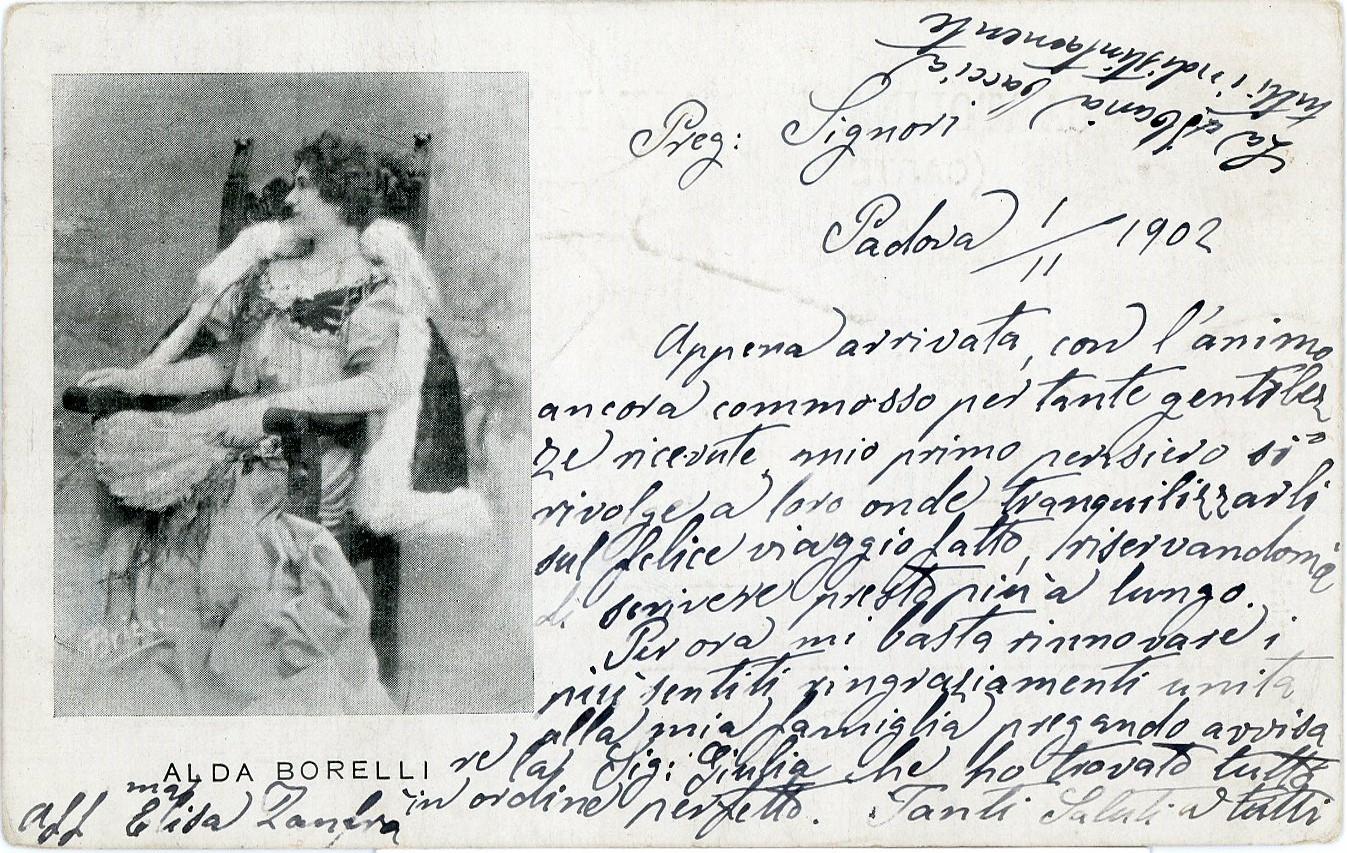 Preg: Signori
Padova 1/11 1902
Appena arrivata, con l'animo
ancora commosso per tante gentilez
ze ricevute, mio primo pensiero si
rivolge a loro onde tranquilizzarli
sul felice viaggio fatto, riservandomi
di scrivere presto più a lungo.
Per ora mi basta rinnovare i
più sentiti ringraziamenti unita
alla mia famiglia pregando avvisa
re la Sig: Giulia che ho trovato tutto
in ordine perfetto. Tanti Saluti a tutti
Aff
ma
Elisa
ALDA BORELLI
La
baccia
tutti indistintamente